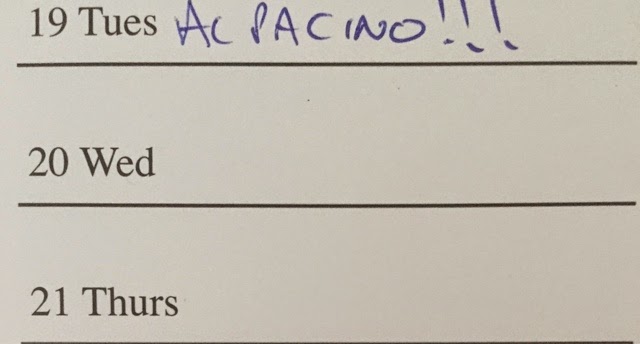 19 Tues AL PACINO!!!
20 Wed
21 Thurs